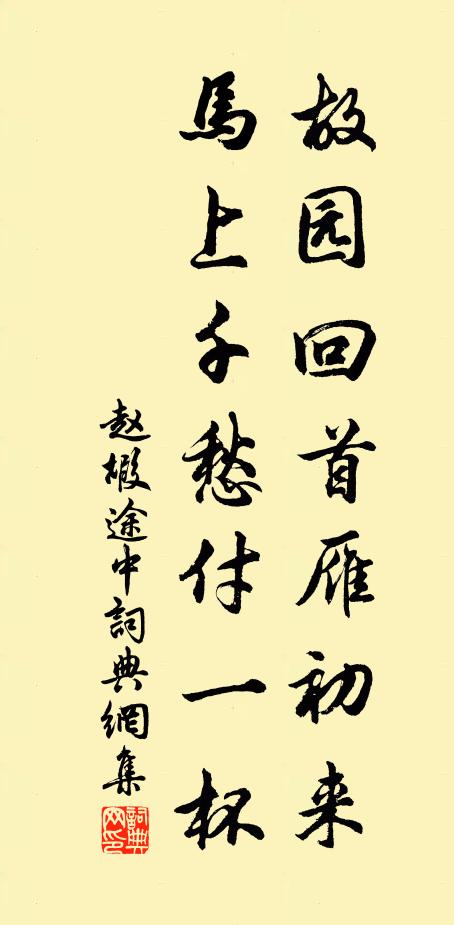 故园回首雁初来
馬上千愁付一杯
赵嘏途中詞典網集
詞典网印